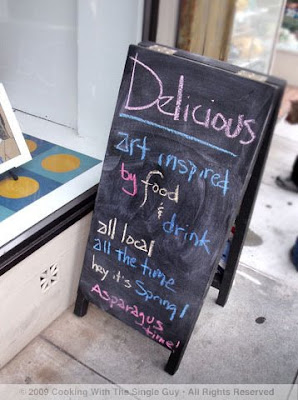 Delicious
art inspired
by food
&
drink
all local
all the time
hey it's Spring!
Asparagus
time!
© 2009 Cooking With The Single Guy · All Rights Reserved